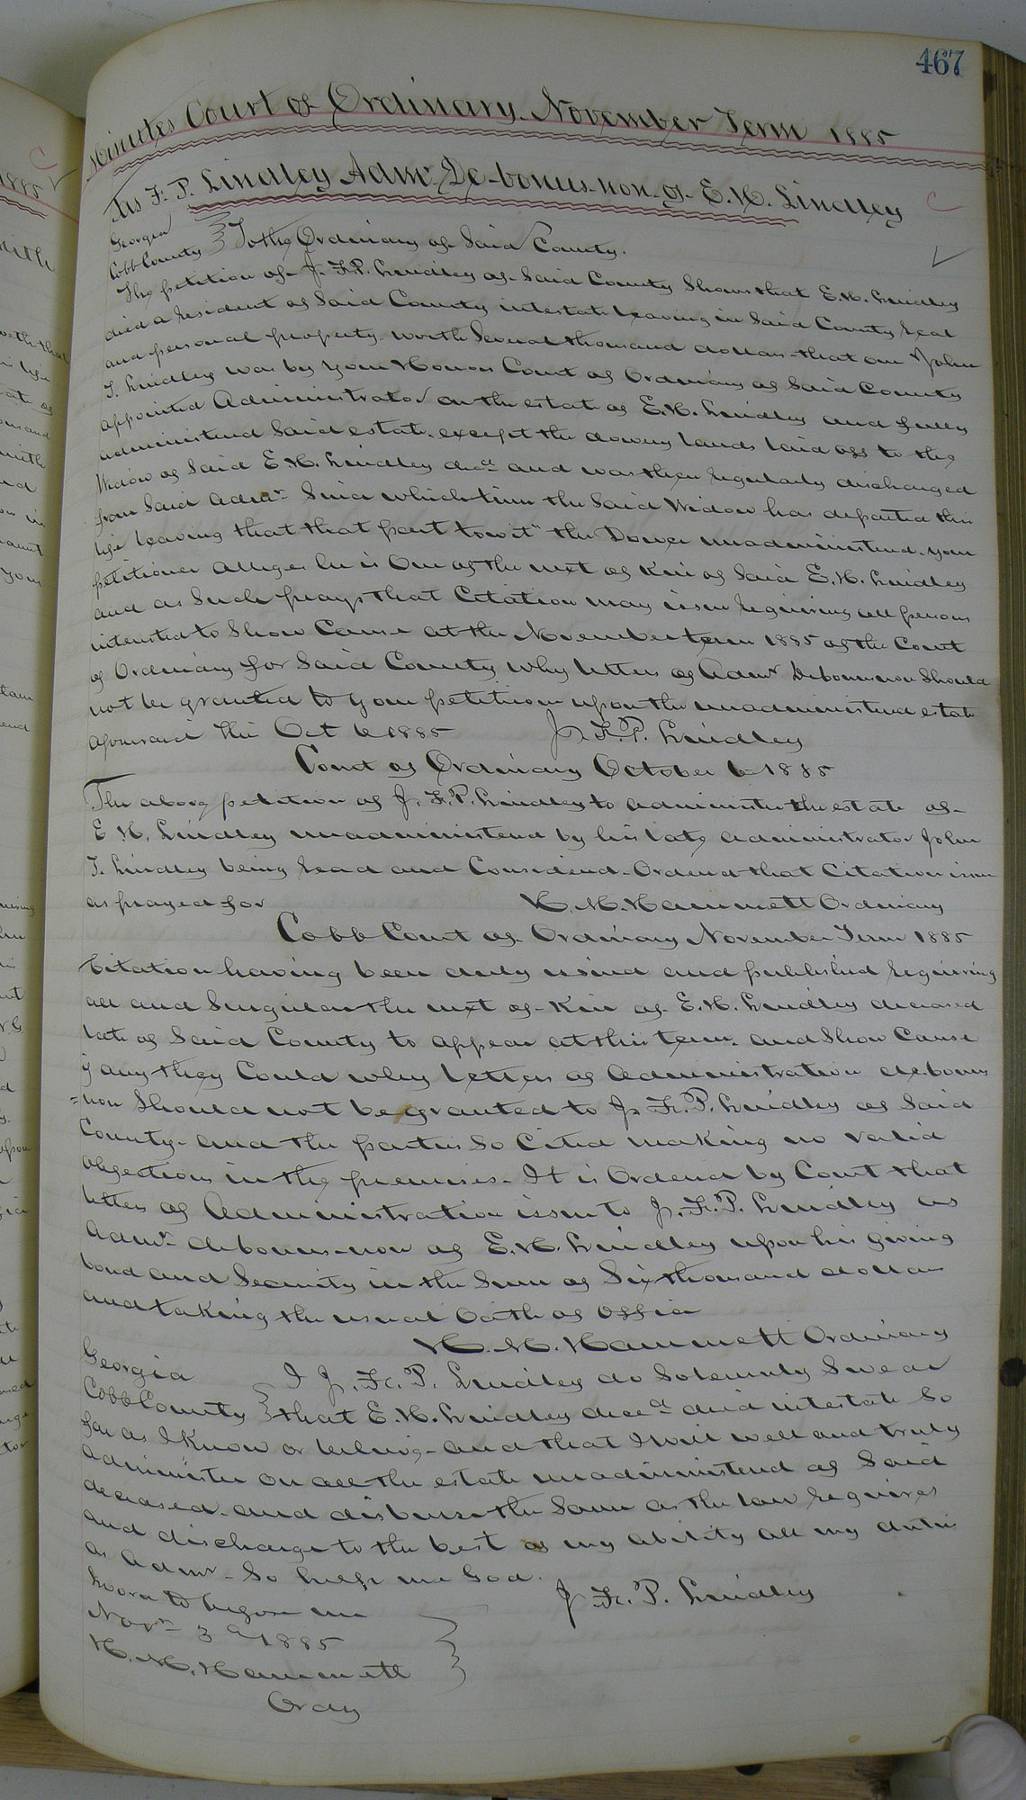 467
Minutes Court of Ordinary November Term 1885
Jas F. P. Lindley Admr De-bonus-non of E. M. Lindley
Georgia
Cobb County } To the Ordinary of Said County.
The petition of J. F. P. Lindley of Said County Shows that E. M. Lindley
died a resident of Said County intestate leaving in Said County real
and personal property worth Several thousand dollars that one John
T. Lindley was by your Honors Court of Ordinary of Said County
appointed Administrator on the estate of E. M. Lindley and fully
administered Said estate except the dowery lands laid off to the
Widow of Said E. M. Lindley decd and was then regularly discharged
from Said Admr Since which time the Said Widow has departed this
life leaving that that part towit" the Dower unadministered. your
petitioner alleges he is One of the next of Kin of Said E. M. Lindley
and as Such prays that Citation may issue requiring all persons
interested to Show Cause at the November term 1885 of the Court
of Ordinary for Said County why letters of Admr Debonus non Should
not be granted to your petitioner upon the unadministered estate
aforesaid This Oct 6 1885 J. F. P. Lindley
Court of Ordinary October 6 1885
The above petition of J. F. P. Lindley to administer the estate of
E M. Lindley unadministered by his late administrator John
T. Lindley being read and Considered Ordered that Citation issue
as prayed for H. M. Hammett Ordinary
Cobb Court of Ordinary November Term 1885
Citation having been duly issued and published requiring
all and Singular the next of Kin of E. M. Lindley deceased
late of Said County to appear at this term and Show Cause
if any they Could why letters of administration debonus
=non Should not be granted to J. F. P. Lindley of Said
County. and the parties So Cited making no valid
objections in the premises. It is Ordered by Court that
letters of Administration issue to J. F. P. Lindley as
Admr. debonus-non of E. M. Lindley upon his giving
bond and Security in the Sum of Six thousand dollars
and taking the usual Oath of Office
H. M. Hammett Ordinary
Georgia I J. F. P. Lindley do Solemnly Swear
Cobb County } that E. M. Lindley decd died intestate So
far as I Know or believe and that I will well and truly
administer on all the estate unadministered of Said
deceased. and disburse the Same as the law requires
and discharge to the best of my ability all my duties
as Admr. So help me God.
Sworn to before me J. F. P. Lindley
Novr 3d 1885
H. M. Hammett
Ordy